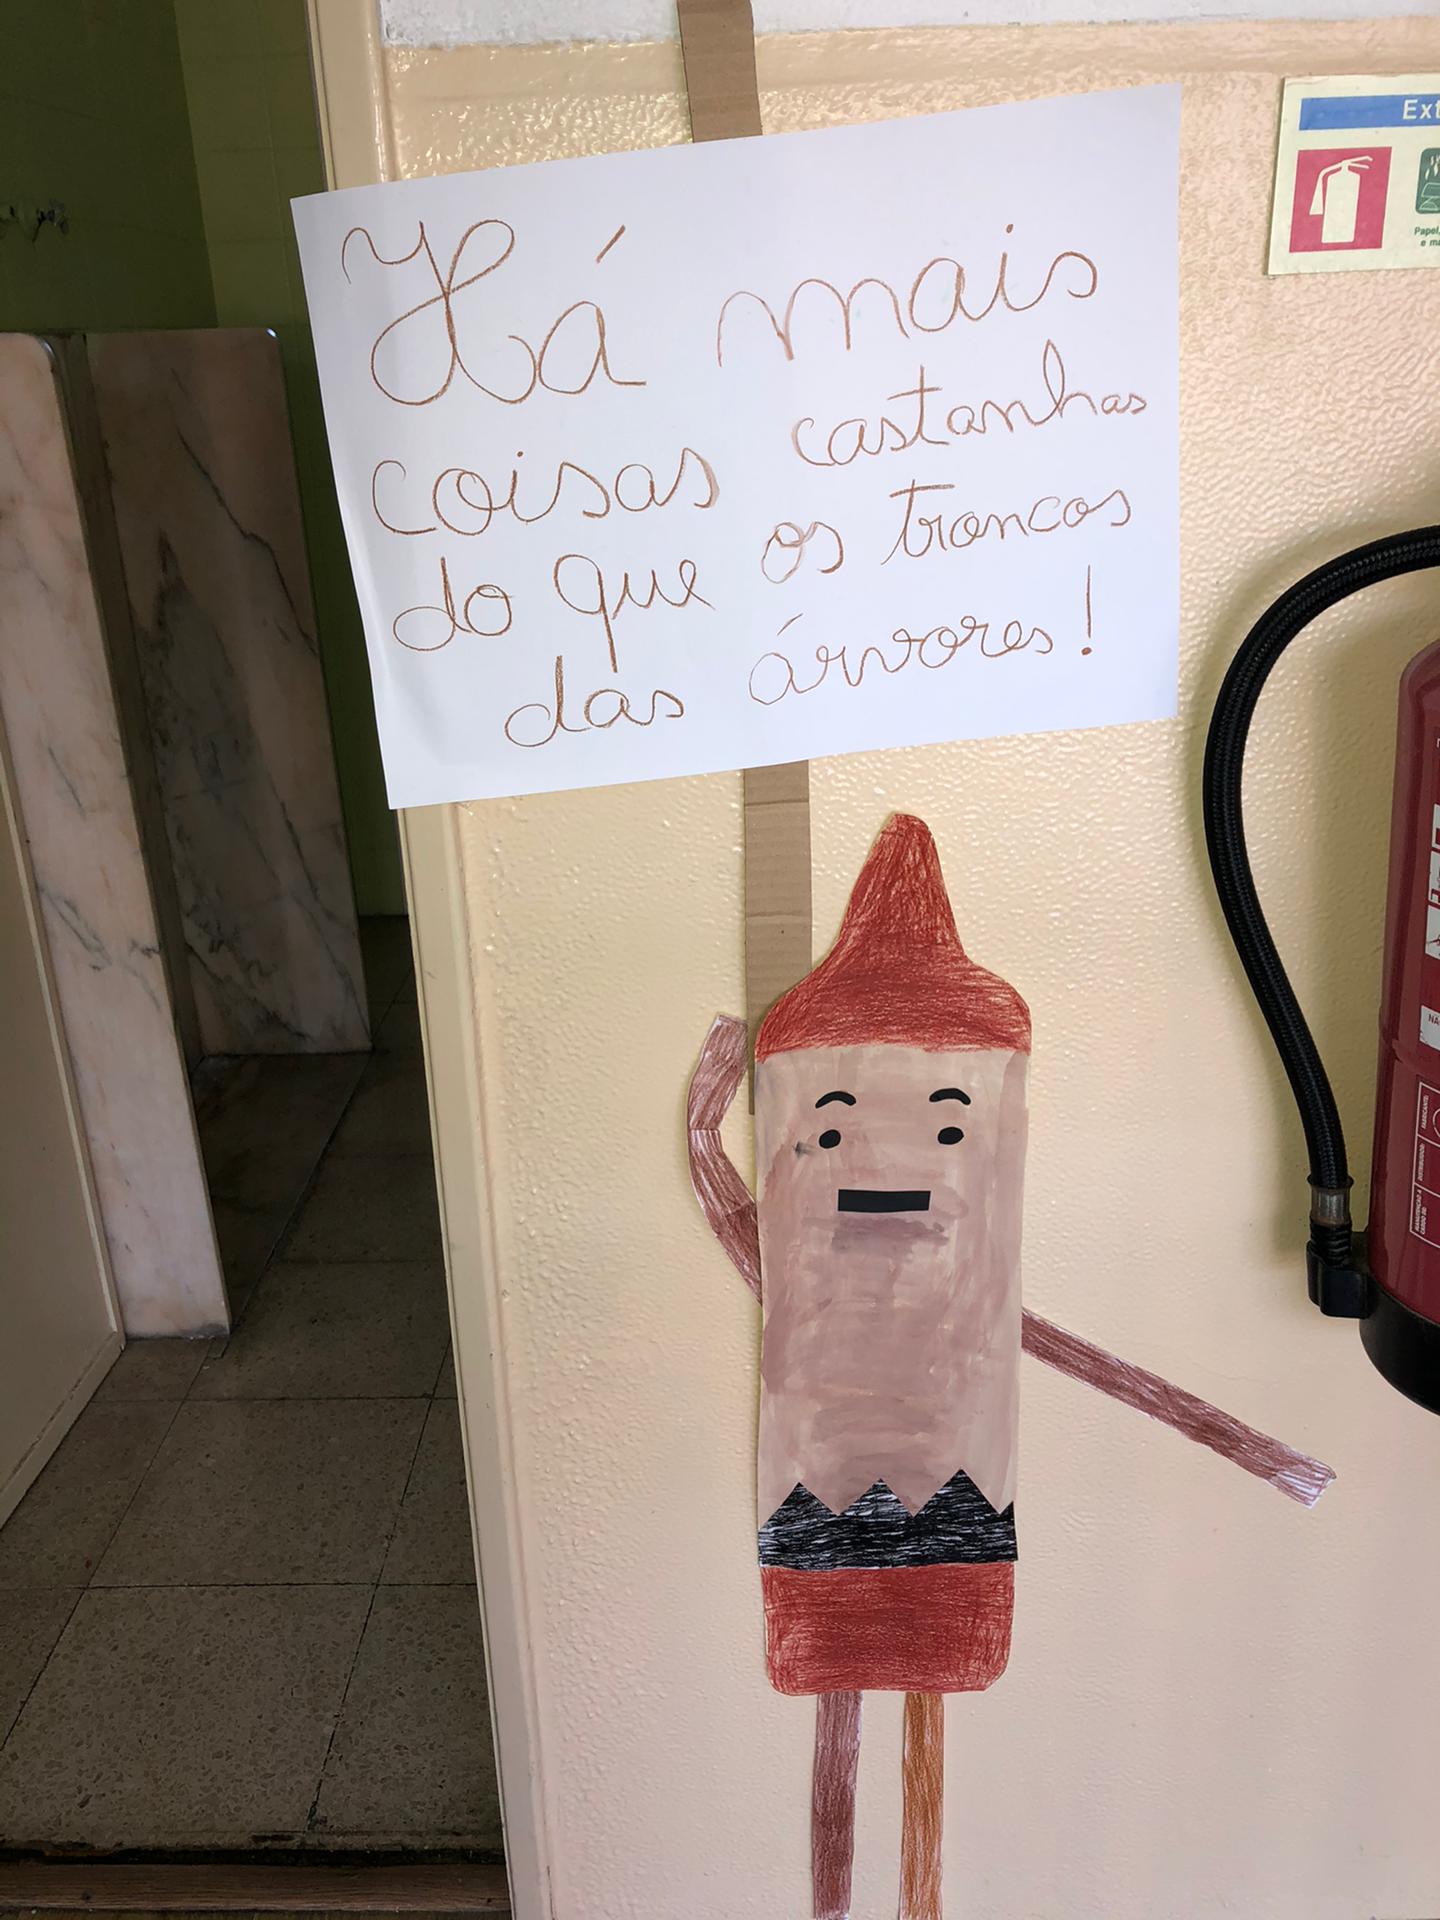 Há mais
coisas castanhas
do que os troncos
das árvores!
Ext
Papel,
e ma